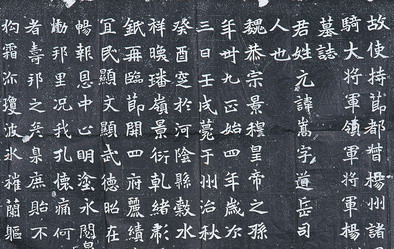 故使持節都督楊州諸
騎大將軍領軍將軍楊
墓誌
君姓元諱嵩字道岳司
人也
魏恭宗景穆皇帝之孫
年卅九正始四年歲次
三日壬戌薨于州治秋
癸酉窆於河陰縣穀水
祥晚璠嶺景衍乾緒
再臨節開四府麗績
宜民顯文顯武德昭在
暢報恩中心明塗永
慟邦里况我孔懷痛何
者壽邦之庶貽不
徇霜沵瓊波氷摧蘭軀